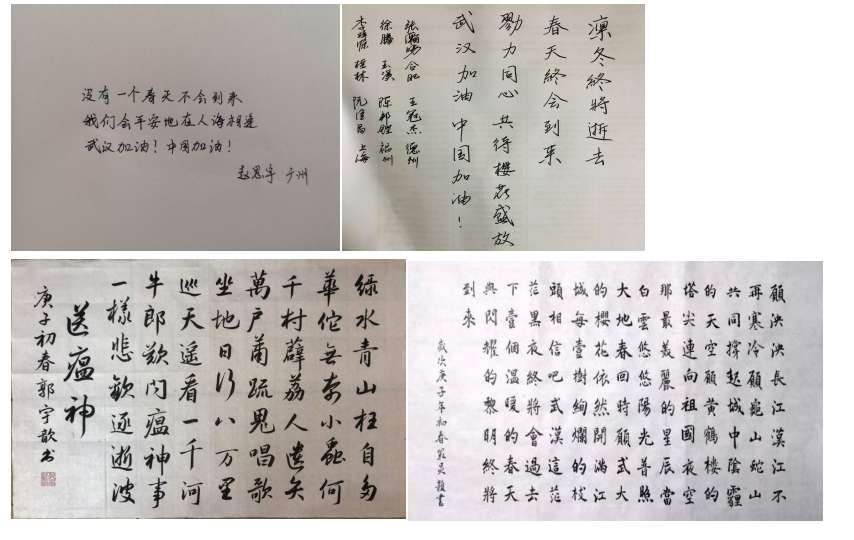 没有一个春天不会到来
我们会平安地在人海相逢
武汉加油！中国加油！
赵思宇 广州
凛冬終將逝去
春天終会到来
勠力同心 共待櫻花盛放
武汉加油 中国加油！
合肥 王冠杰 德州
徐腾 玉溪 陈邦 福州
桂林 上海
绿水青山枉自多
華佗無奈小蟲何
千村薜荔人遺矢
萬户蕭疏鬼唱歌
坐地日行八万里
巡天遥看一千河
牛郎欲问瘟神事
一樣悲歡逐逝波
送瘟神
庚子初春郭宇歆书
願泱泱長江漢江不
再寒冷願龜山蛇山
共同撐起城中陰霾
的天空願黄鶴樓的
塔尖連向祖國夜空
那最美麗的星辰當
白雲悠悠陽光普照
大地春回時願武大
的櫻花依然開滿江
城每壹樹絢爛的枝
頭相信吧武漢這茫
茫黑夜終將會過去
下壹個温暖的春天
與閃耀的黎明終將
到來
歲次庚子年初春 書